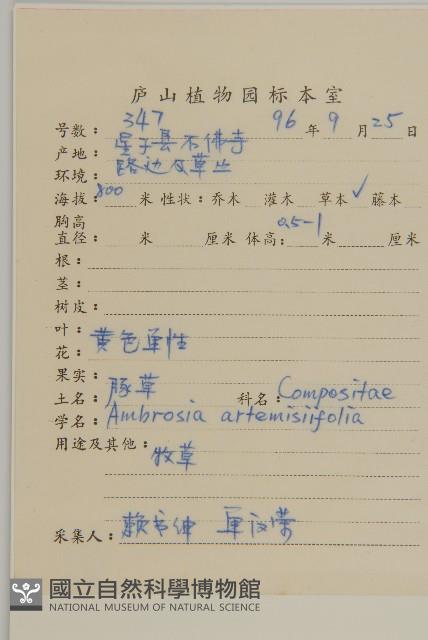 庐山植物园标本室
号数：347 96年9月25日
产地：星子县不佛寺
环境：路边及草丛
海拔：800米 性状：乔木 灌木 草本✓ 藤本
胸高
直径： 米 厘米 体高：0.5-1米 厘米
根：
茎：
树皮：
叶：
花：黄色单性
果实：
土名：豚草 科名：Compositae
学名：Ambrosia artemisiifolia
用途及其他：牧草
采集人：赖书绅
國立自然科學博物館
NATIONAL MUSEUM OF NATURAL SCIENCE